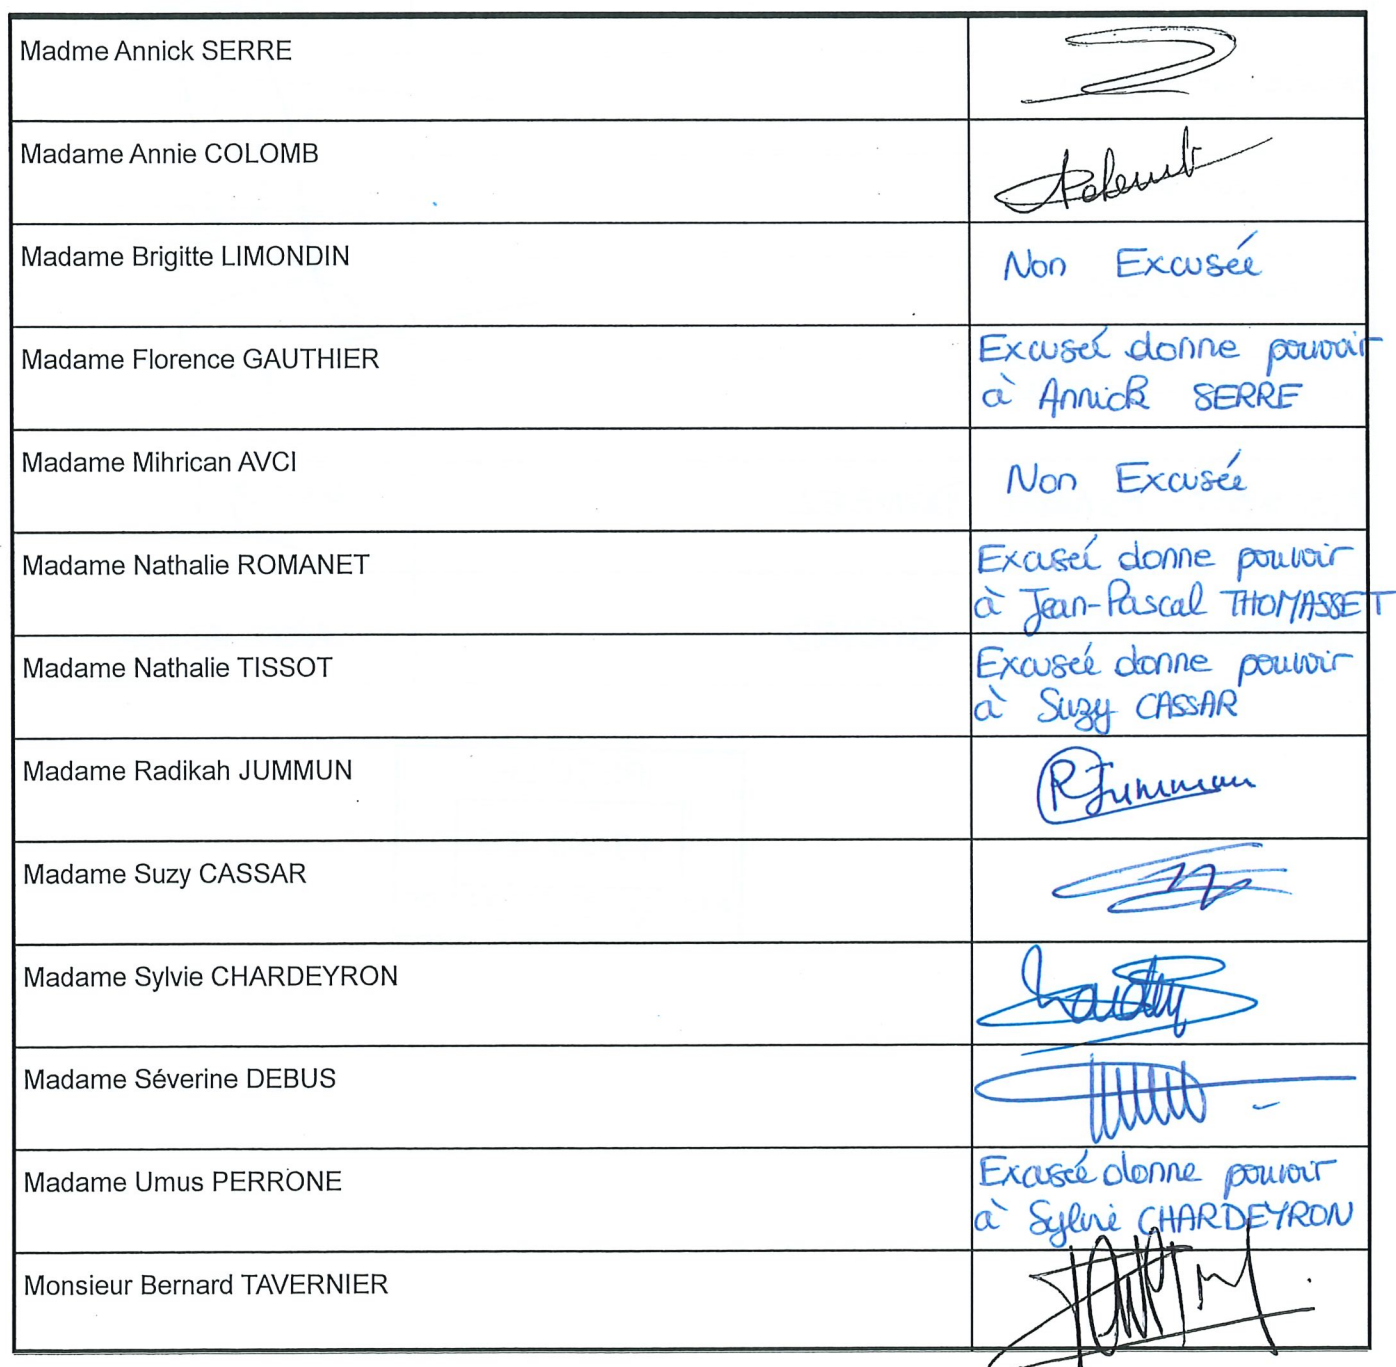 Madme Annick SERRE
Madame Annie COLOMB
Madame Brigitte LIMONDIN
Non Excusée
Madame Florence GAUTHIER
Excusée donne pouvoir
à Annick SERRE
Madame Mihrican AVCI
Non Excusée
Madame Nathalie ROMANET
Excusée donne pouvoir
à Jean-Pascal THOMASSET
Madame Nathalie TISSOT
Excusée donne pouvoir
à Suzy CASSAR
Madame Radikah JUMMUN
RJummun
Madame Suzy CASSAR
Madame Sylvie CHARDEYRON
Madame Séverine DEBUS
Madame Umus PERRONE
Excusée donne pouvoir
à Sylvie CHARDEYRON
Monsieur Bernard TAVERNIER